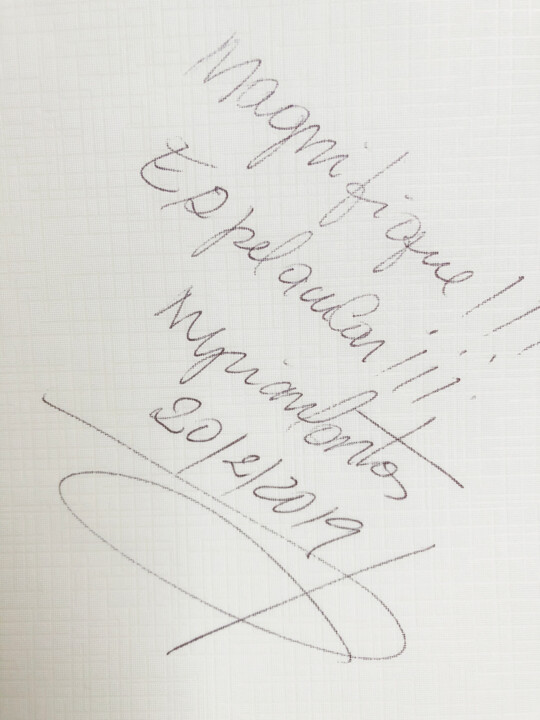 Magnifique!!!
Espelacular!!!
Myrian Fontes
20/2/2019